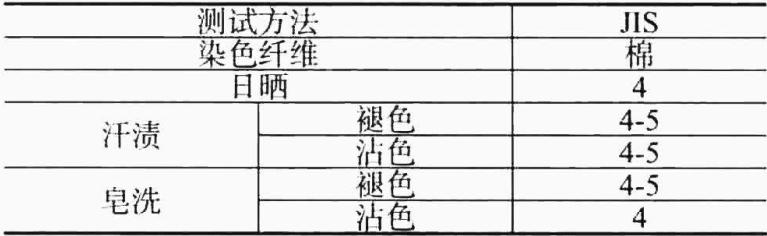 测试方法 JIS
染色纤维 棉
日晒 4
汗渍 褪色 4-5
沾色 4-5
皂洗 褪色 4-5
沾色 4